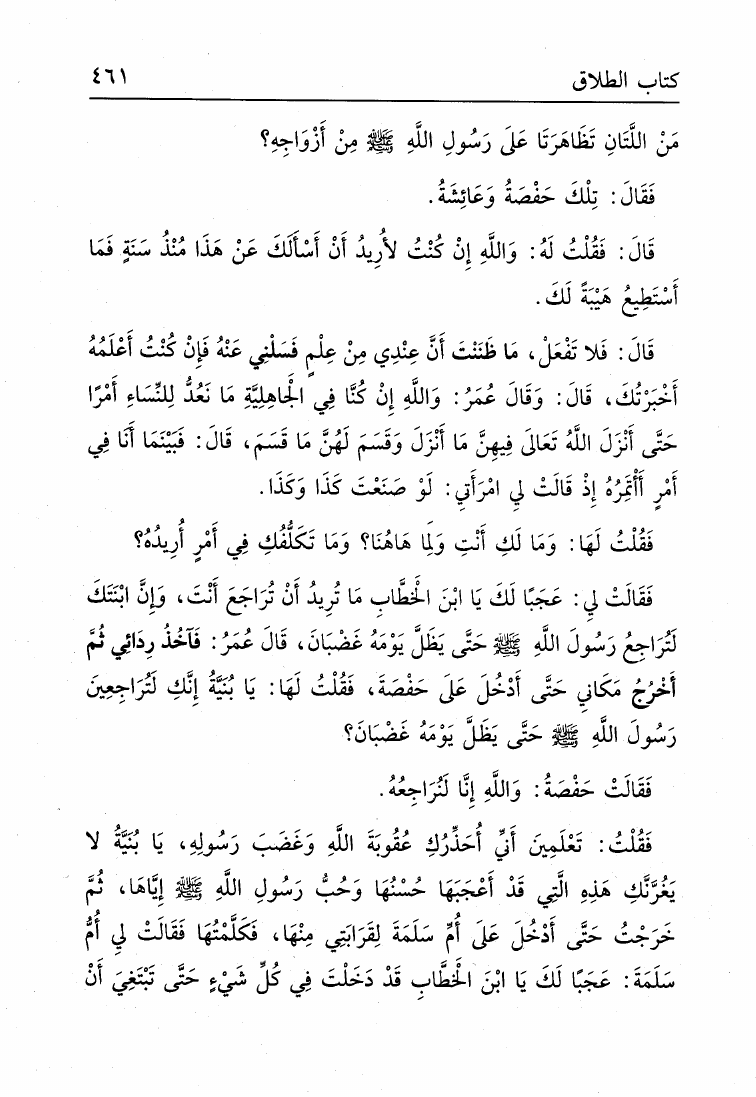 كتاب الطلاق ٤٦١
مَنْ اللَّتَانِ تَظَاهَرَتَا عَلَى رَسُولِ اللَّهِ ﷺ مِنْ أَزْوَاجِهِ؟
فَقَالَ: تِلْكَ حَفْصَةُ وَعَائِشَةُ.
قَالَ: فَقُلْتُ لَهُ: وَاللَّهِ إِنْ كُنْتُ لأُرِيدُ أَنْ أَسْأَلَكَ عَنْ هَذَا مُنْذُ سَنَةٍ فَمَا
أَسْتَطِيعُ هَيْبَةً لَكَ.
قَالَ: فَلا تَفْعَلْ، مَا ظَنَنْتَ أَنَّ عِنْدِي مِنْ عِلْمٍ فَسَلْنِي عَنْهُ فَإِنْ كُنْتُ أَعْلَمُهُ
أَخْبَرْتُكَ، قَالَ: وَقَالَ عُمَرُ: وَاللَّهِ إِنْ كُنَّا فِي الْجَاهِلِيَّةِ مَا نَعُدُّ لِلنِّسَاءِ أَمْرًا
حَتَّى أَنْزَلَ اللَّهُ تَعَالَى فِيهِنَّ مَا أَنْزَلَ وَقَسَمَ لَهُنَّ مَا قَسَمَ، قَالَ: فَبَيْنَمَا أَنَا فِي
أَمْرٍ أَأْتَمِرُهُ إِذْ قَالَتْ لِي امْرَأَتِي: لَوْ صَنَعْتَ كَذَا وَكَذَا.
فَقُلْتُ لَهَا: وَمَا لَكِ أَنْتِ وَلِمَا هَاهُنَا؟ وَمَا تَكَلُّفُكِ فِي أَمْرٍ أُرِيدُهُ؟
فَقَالَتْ لِي: عَجَبًا لَكَ يَا ابْنَ الْخَطَّابِ مَا تُرِيدُ أَنْ تُرَاجَعَ أَنْتَ، وَإِنَّ ابْنَتَكَ
لَتُرَاجِعُ رَسُولَ اللَّهِ ﷺ حَتَّى يَظَلَّ يَوْمَهُ غَضْبَانَ، قَالَ عُمَرُ: فَآخُذُ رِدَائِي ثُمَّ
أَخْرُجُ مَكَانِي حَتَّى أَدْخُلَ عَلَى حَفْصَةَ، فَقُلْتُ لَهَا: يَا بُنَيَّةُ إِنَّكِ لَتُرَاجِعِينَ
رَسُولَ اللَّهِ ﷺ حَتَّى يَظَلَّ يَوْمَهُ غَضْبَانَ؟
فَقَالَتْ حَفْصَةُ: وَاللَّهِ إِنَّا لَنُرَاجِعُهُ.
فَقُلْتُ: تَعْلَمِينَ أَنِّي أُحَذِّرُكِ عُقُوبَةَ اللَّهِ وَغَضَبَ رَسُولِهِ، يَا بُنَيَّةُ لا
يَغُرَّنَّكِ هَذِهِ الَّتِي قَدْ أَعْجَبَهَا حُسْنُهَا وَحُبُّ رَسُولِ اللَّهِ ﷺ إِيَّاهَا، ثُمَّ
خَرَجْتُ حَتَّى أَدْخُلَ عَلَى أُمِّ سَلَمَةَ لِقَرَابَتِي مِنْهَا، فَكَلَّمْتُهَا فَقَالَتْ لِي أُمُّ
سَلَمَةَ: عَجَبًا لَكَ يَا ابْنَ الْخَطَّابِ قَدْ دَخَلْتَ فِي كُلِّ شَيْءٍ حَتَّى تَبْتَغِيَ أَنْ